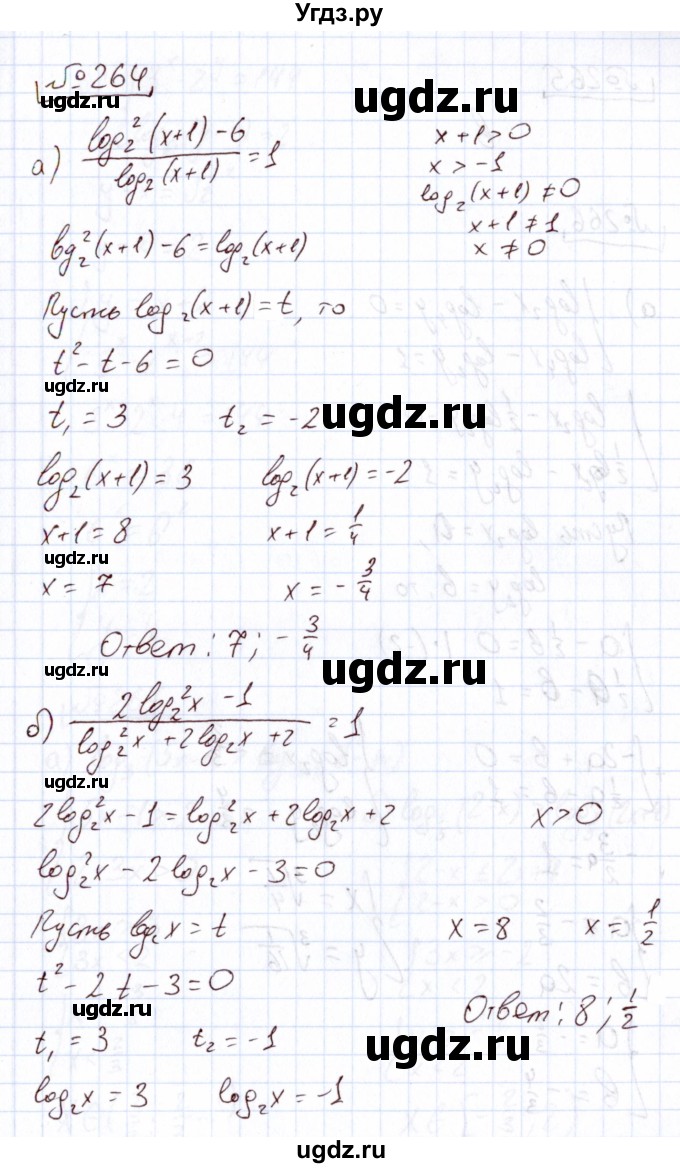 Угдз.ру
№264
ugdz.ru
а) (log₂²(x+1) - 6)/(log₂(x+1)) = 1
x+1>0
x>-1
log₂(x+1) ≠0
x+1≠1
x ≠0
log₂²(x+1) - 6 = log₂(x+1)
Пусть log₂(x+1) = t, то
t² - t - 6 = 0
ugdz.ru
t₁ = 3 t₂ = -2
ugdz.ru
log₂(x+1) = 3 log₂(x+1) = -2
x+1 = 8 x+1 = 1/4
ugdz.ru
x = 7 x = - 3/4
Ответ: 7; - 3/4
ugdz.ru
ugdz.ru
б) (2log₂²x - 1)/(log₂²x + 2log₂x + 2) = 1
ugdz.ru
2log₂²x - 1 = log₂²x + 2log₂x + 2 x>0
log₂²x - 2log₂x - 3 = 0
ugdz.ru
Пусть log₂x = t x = 8 x = 1/2
t² - 2t - 3 = 0
ugdz.ru
Ответ: 8; 1/2
t₁ = 3 t₂ = -1
ugdz.ru
ugdz.ru
log₂x = 3 log₂x = -1
ugdz.ru